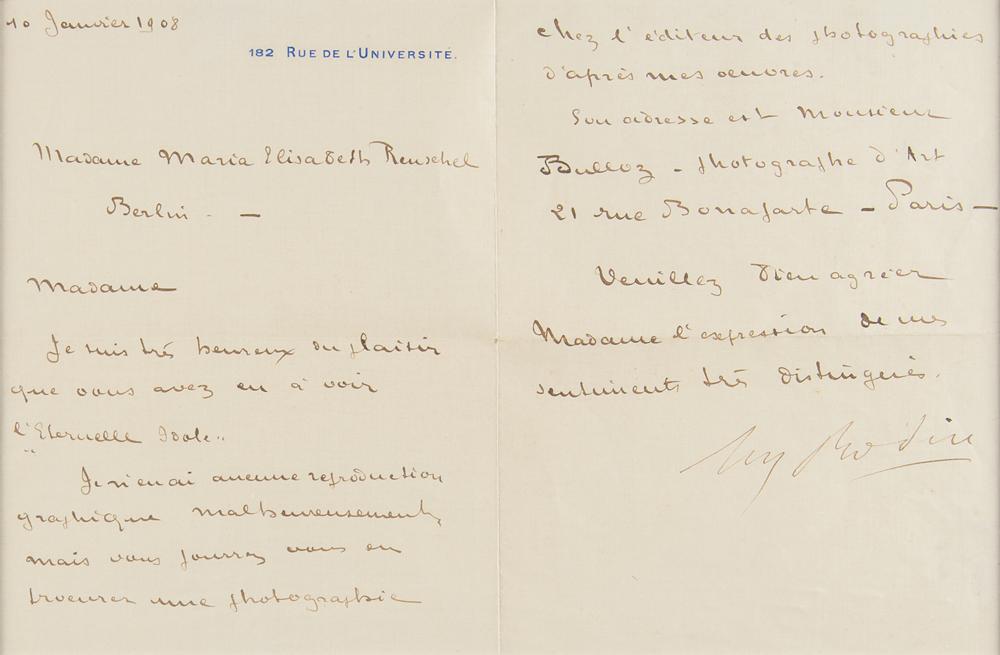 10 Janvier 1908
182 RUE DE L'UNIVERSITÉ.
Madame Maria Elisabeth Reuschel
Berlin - —
Madame
Je suis très heureux du plaisir
que vous avez eu à voir
l'"Eternelle Idole"
Je n'en ai aucune reproduction
graphique malheureusement,
mais vous pourrez vous en
trouver une photographie
chez l'éditeur des photographies
d'après mes oeuvres.
Son adresse est Monsieur
Bulloz - photographe d'Art
21 rue Bonaparte — Paris —
Veuillez bien agréer
Madame l'expression de mes
sentiments très distingués.
Aug Rodin